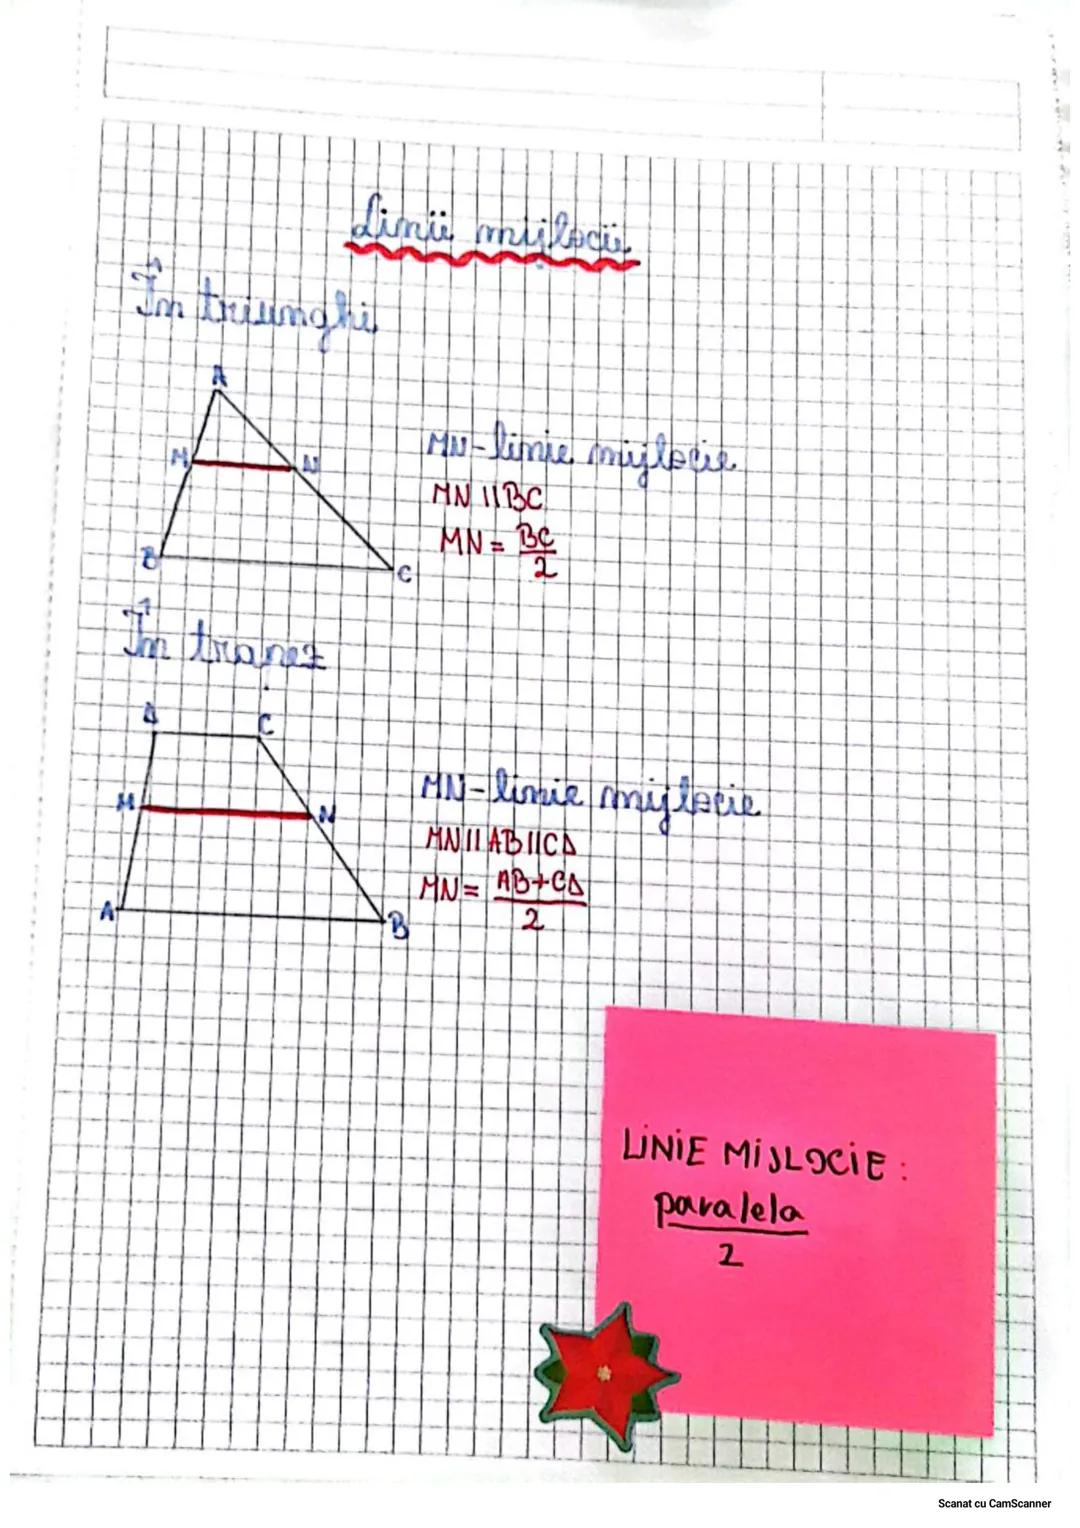 Linii mijlocii
În triunghi
A
M N
B
C
MN-linie mijlocie
MN || BC
MN = BC/2
În trapez
D C
M N
A B
MN-linie mijlocie
MN || AB || CD
MN = AB+CD/2
LINIE MIJLOCIE:
paralela
2
Scanat cu CamScanner